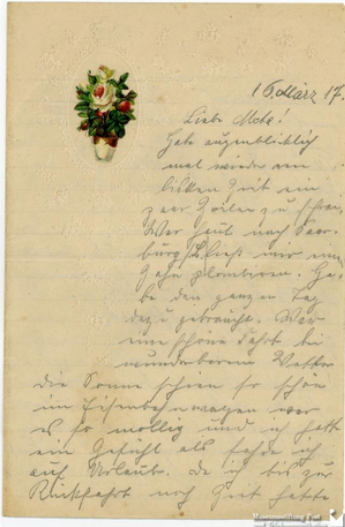 16. März 17.
Liebe Mota!
Habe augenblicklich
mal wieder ein
bisken Zeit ein
paar Zeilen zu schrei-
War heut nach Saar-
burg ließ mir einen
Zahn plombieren. Ha-
be den ganzen Tag
dazu gebraucht. War
eine schöne Fahrt bei
wunderbarem Wetter
die Sonne schien so schön
im Eisenbahnwagen war
es so mollig und ich hatt
ein Gefühl als fahre ich
auf Urlaub. Da ich bis zur
Rückfahrt noch Zeit hatte